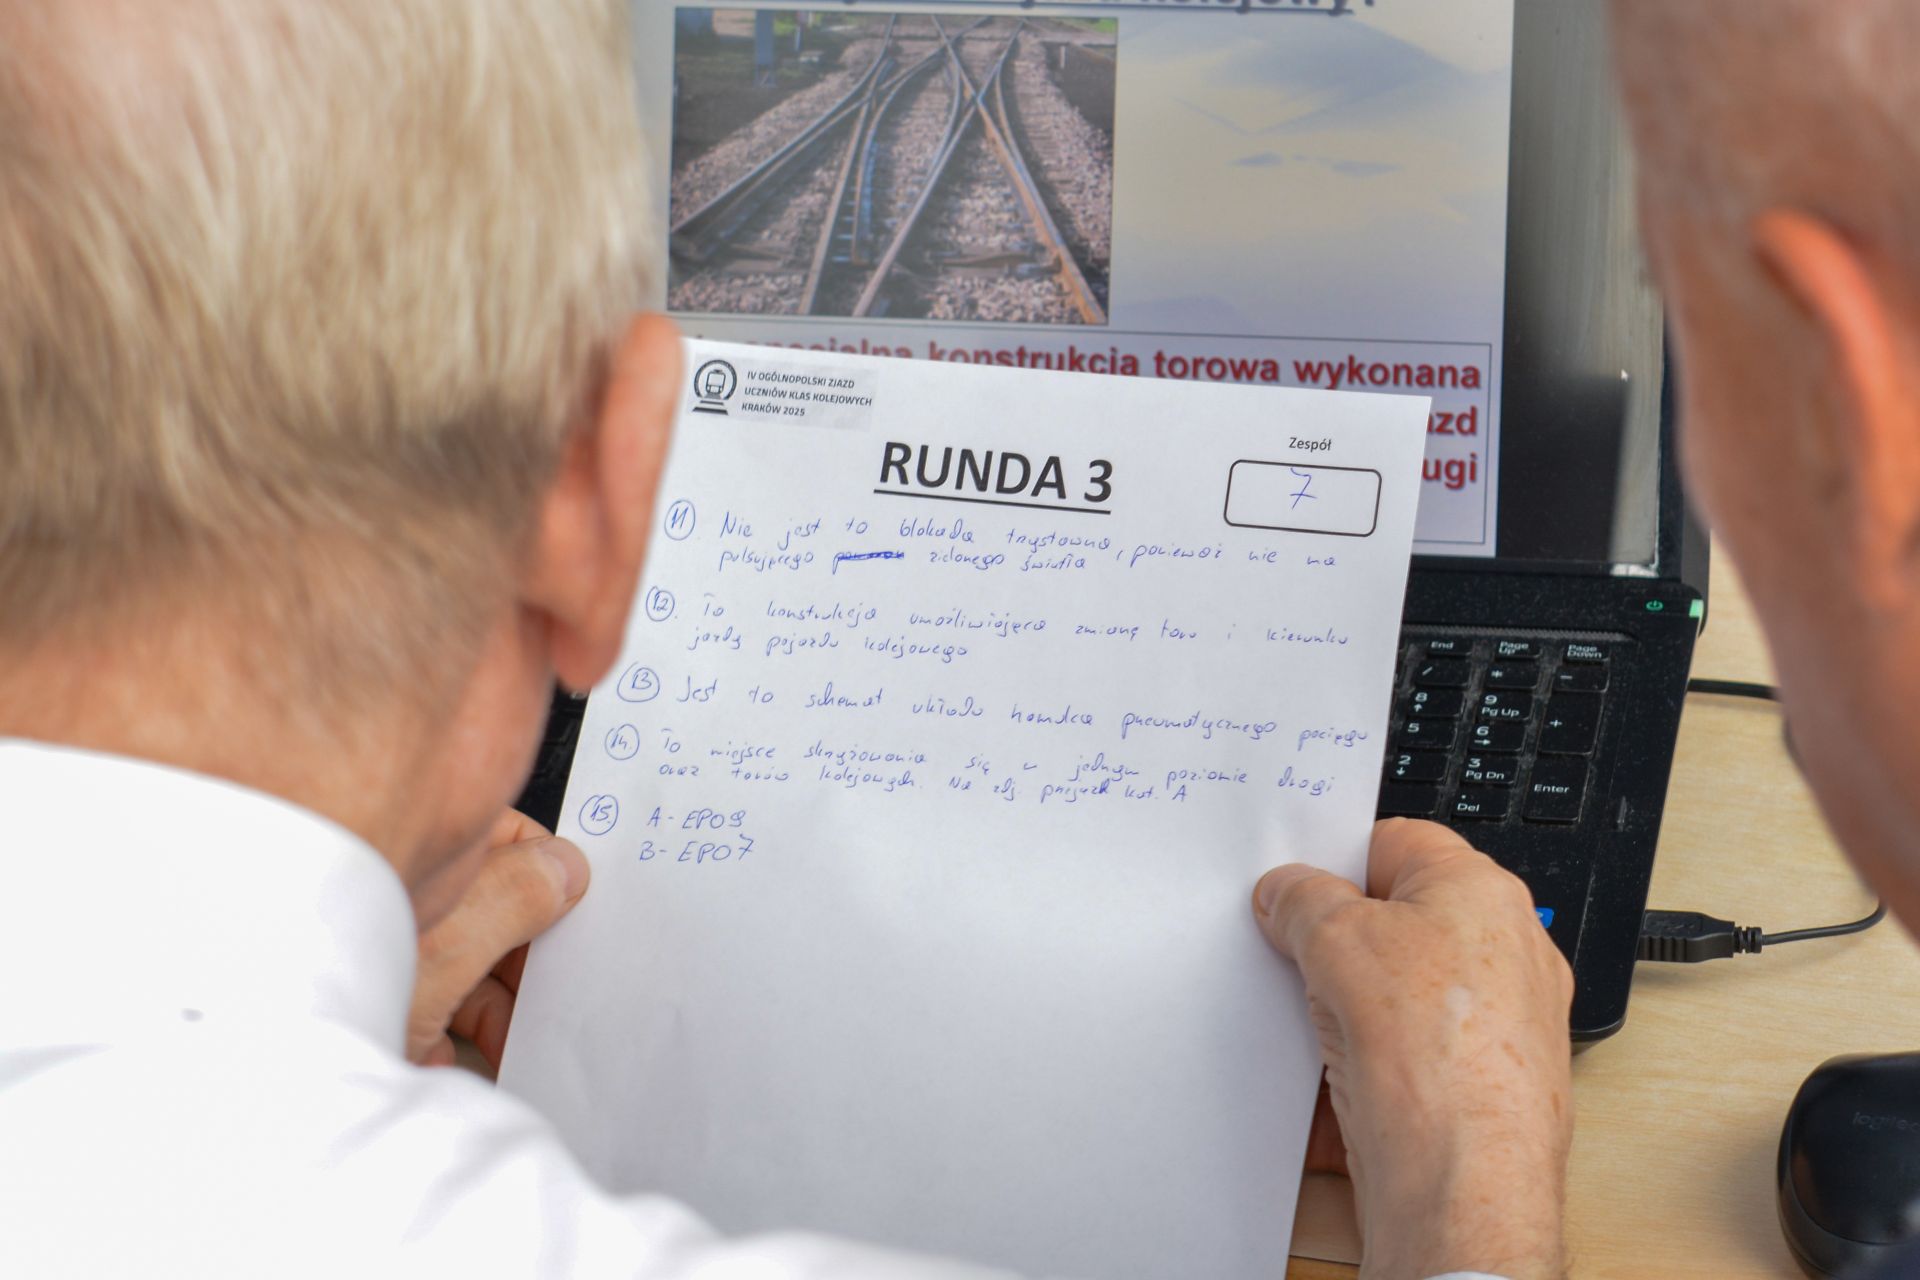 specjalna konstrukcja torowa wykonana
IV OGÓLNOPOLSKI ZJAZD
UCZNIÓW KLAS KOLEJOWYCH
KRAKÓW 2025
RUNDA 3
Zespół
7
11 Nie jest to blokada trzystawna, ponieważ nie ma
pulsującego zielonego światła
12. To konstrukcja umożliwiająca zmianę toru i kierunku
jazdy pojazdu kolejowego
13 Jest to schemat układu hamulca pneumatycznego pociągu
14. To miejsce skrzyżowania się w jednym poziomie drogi
oraz torów kolejowych. Na zdj. przejazd kat. A
15. A - EPO9
B - EPO7
End
Page Up
Page Down
/
*
-
8
9
Pg Up
+
5
6
2
3
Pg Dn
Enter
.
Del
logitec